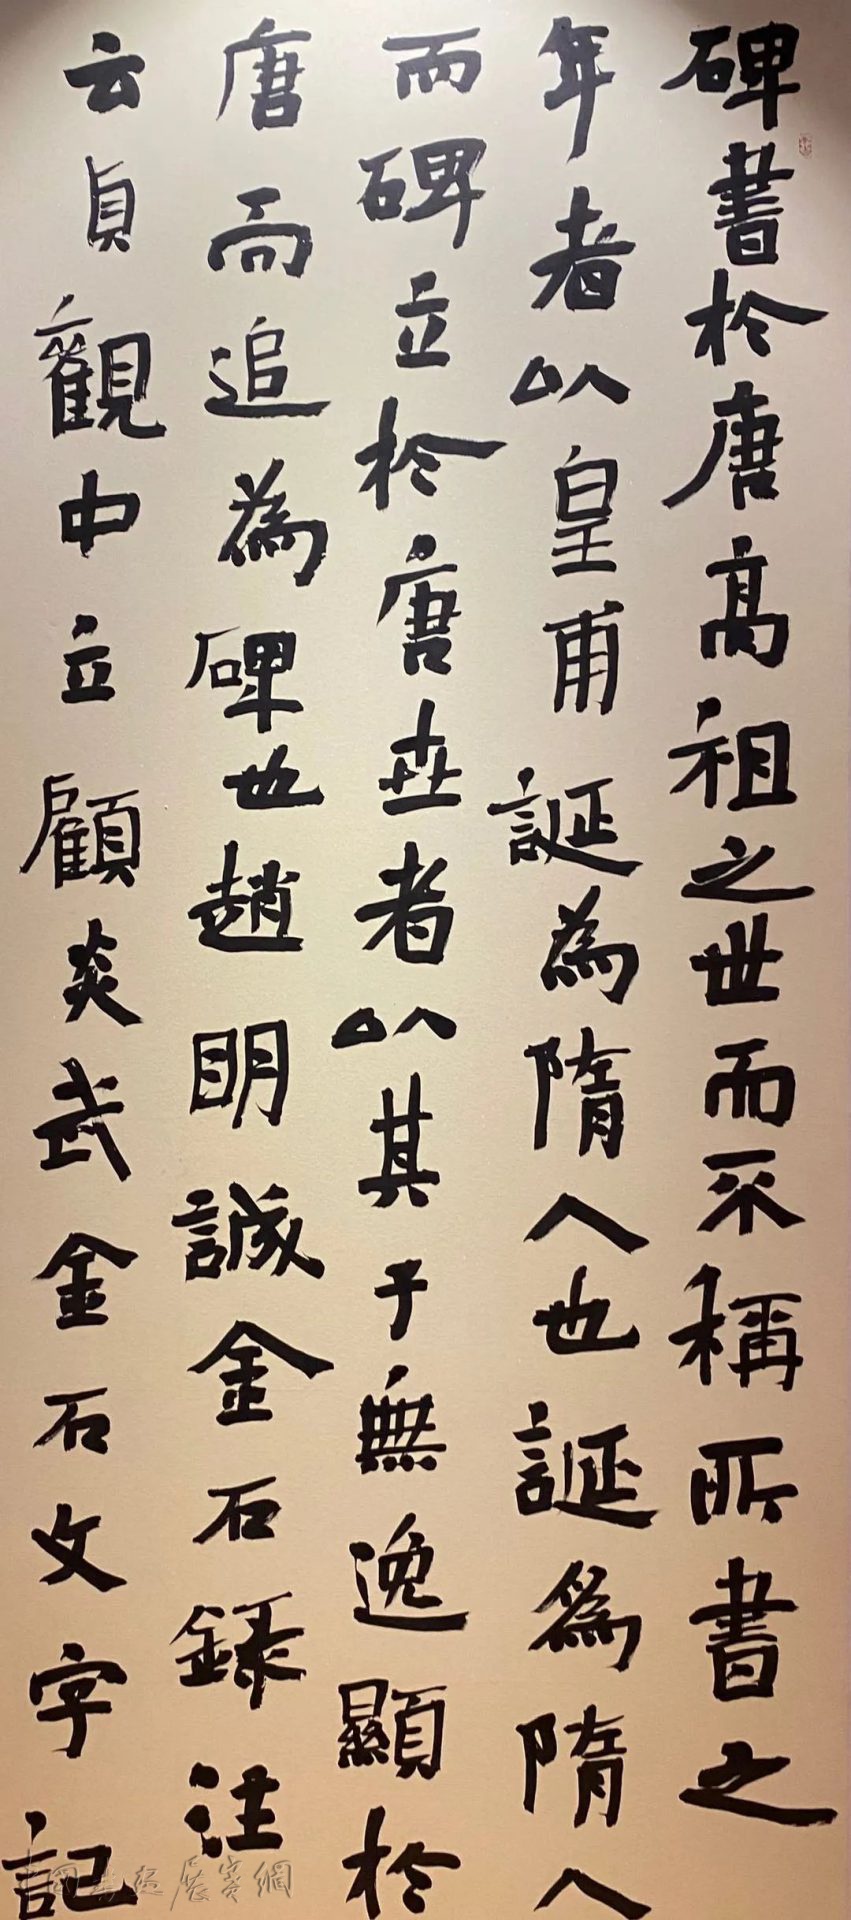 碑書於唐高祖之世而不稱所書之
年者以皇甫誕為隋人也誕為隋人
而碑立於唐世者以其子無逸顯於
唐而追為碑也趙明誠金石錄注
云貞觀中立顧炎武金石文字記